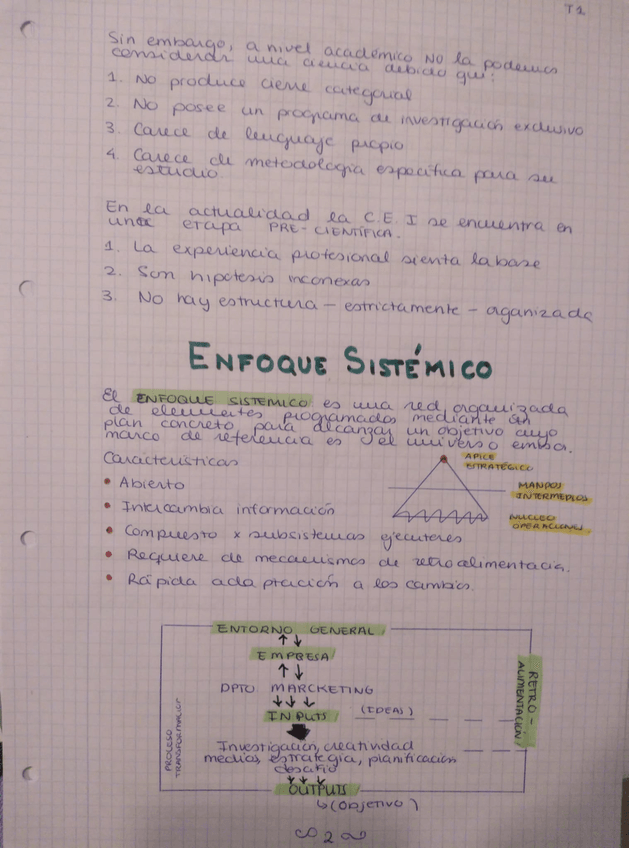 T1
Sin embargo, a nivel académico NO la podemos
considerar una ciencia debido qui:
1. No produce cierre categorial
2. No posee un programa de investigación exclusivo
3. Carece de lenguaje propio
4. Carece de metodologia especifica para su
estudio
En la actualidad la C.E.I se encuentra en
una etapa PRE-CIENTÍFICA.
1. La experiencia profesional sienta la base
2. Son hipótesis inconexas
3. No hay estructura - estrictamente - organizada
ENFOQUE SISTÉMICO
El ENFOQUE SISTEMICO es una red organizada
de elementos programados mediante un
plan concreto para alcanzar un objetivo cuyo
marco de referencia es el universo empsa.
Caracteristicas
• Abierto
• Intercambia información
• Compuesto x subsistemas ejecutores
• Requiere de mecanismos de retroalimentacia.
• Rápida adaptación a los cambios.
APICE
ESTRATÉGICO
MANDOS
INTERMEDIOS
NUCLEO
OPERACIONES
ENTORNO GENERAL
EMPRESA
DPTO MARCKETING
INPUTS (IDEAS)
Investigación, creatividad
medios, estrategia, planificación
desafio
OUTPUTS
↳(Objetivo)
PROCESO
TRANSFORMADOR
RETRO-
ALIMENTACIÓN
2